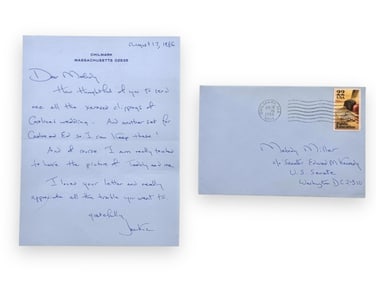 CHILMARK
MASSACHUSETTS 02535
August 13, 1986
Dear Melody
How thoughtful of you to send
me all the xeroxed clippings of
Caroline's wedding. And another set for
Caroline and Ed so I can keep these!
And of course I am really touched
to have the picture of Teddy and me.
I loved your letter and really
appreciate all the trouble you went to
gratefully
Jackie
22
USA
Public Education
Melody Miller
c/o Senator Edward M Kennedy
U.S. Senate
Washington DC 20510